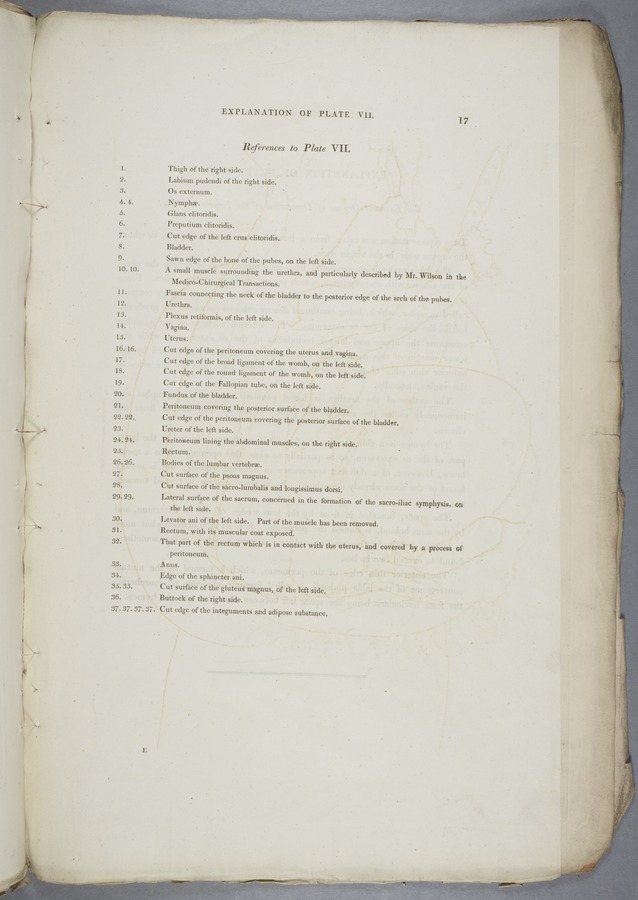 EXPLANATION OF PLATE VII.
17
References to Plate VII.
1. Thigh of the right side.
2. Labium pudendi of the right side.
3. Os externum.
4. 4. Nymphæ.
5. Glans clitoridis.
6. Preputium clitoridis.
7. Cut edge of the left crus clitoridis.
8. Bladder.
9. Sawn edge of the bone of the pubes, on the left side.
10. 10. A small muscle surrounding the urethra, and particularly described by Mr. Wilson in the
Medico-Chirurgical Transactions.
11. Fascia connecting the neck of the bladder to the posterior edge of the arch of the pubes.
12. Urethra.
13. Plexus retiformis, of the left side.
14. Vagina.
15. Uterus.
16. 16. Cut edge of the peritoneum covering the uterus and vagina.
17. Cut edge of the broad ligament of the womb, on the left side.
18. Cut edge of the round ligament of the womb, on the left side.
19. Cut edge of the Fallopian tube, on the left side.
20. Fundus of the bladder.
21. Peritoneum covering the posterior surface of the bladder.
22. 22. Cut edge of the peritoneum covering the posterior surface of the bladder.
23. Ureter of the left side.
24. 24. Peritoneum lining the abdominal muscles, on the right side.
25. Rectum.
26. 26. Bodies of the lumbar vertebræ.
27. Cut surface of the psoas magnus.
28. Cut surface of the sacro-lumbalis and longissimus dorsi.
29. 29. Lateral surface of the sacrum, concerned in the formation of the sacro-iliac symphysis, on
the left side.
30. Levator ani of the left side. Part of the muscle has been removed.
31. Rectum, with its muscular coat exposed.
32. That part of the rectum which is in contact with the uterus, and covered by a process of
peritoneum.
33. Anus.
34. Edge of the sphincter ani.
35. 35. Cut surface of the gluteus magnus, of the left side.
36. Buttock of the right side.
37. 37. 37. 37. Cut edge of the integuments and adipose substance.
E